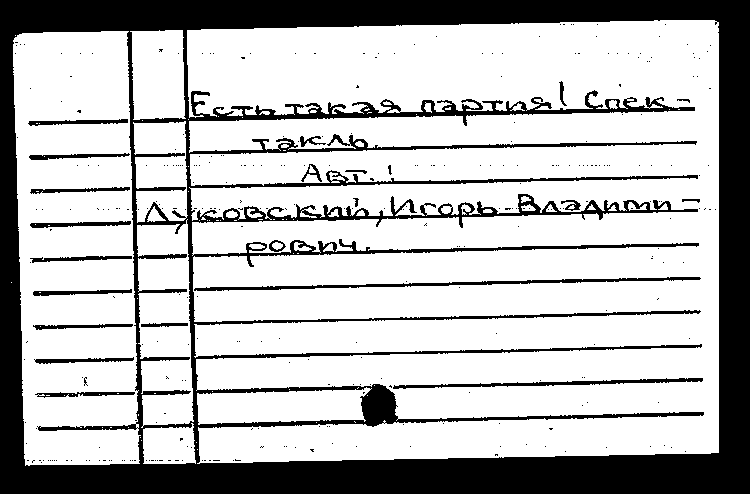 Есть такая партия! Спек-
такль.
Авт.:
Луковский, Игорь Владими-
рович.